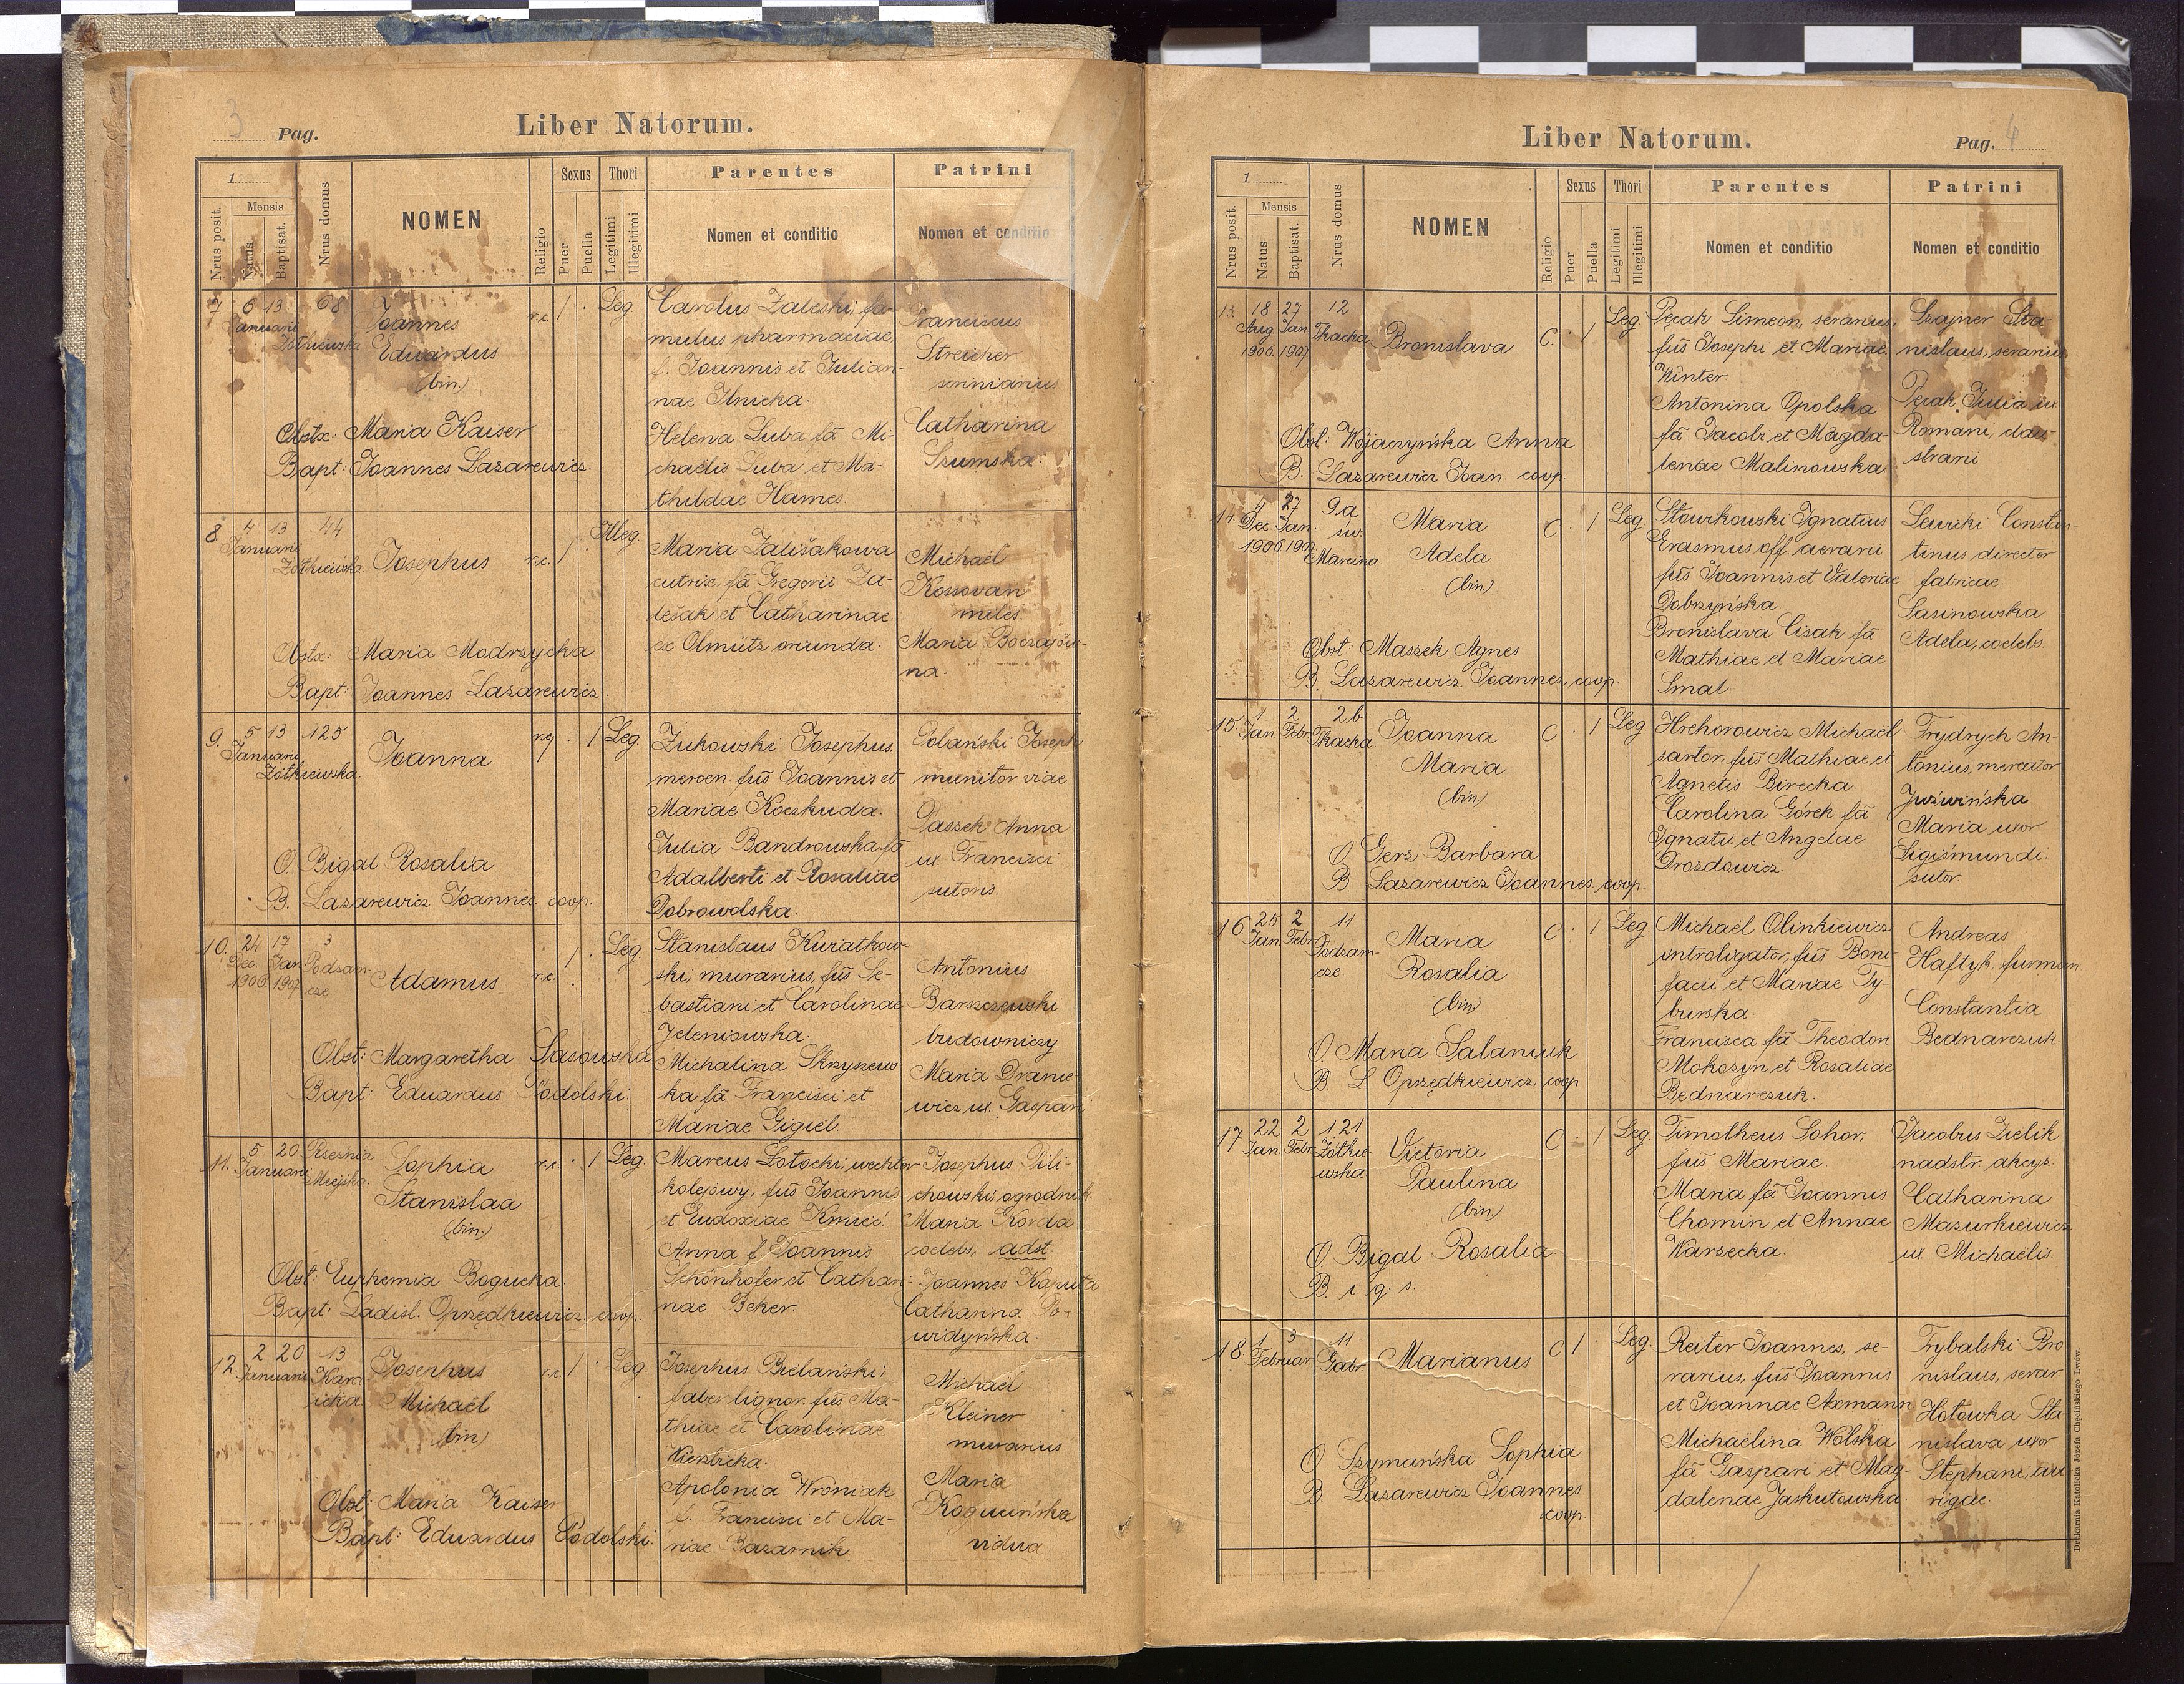 3 Pag.
Liber Natorum.
1
Nrus posit.
Mensis
Natus
Baptisat.
Nrus domus
NOMEN
Religio
Sexus
Puer
Puella
Thori
Legitimi
Illegitimi
Parentes
Nomen et conditio
Patrini
Nomen et conditio
7. 6 13 68
Januarii
Żółkiewska
Joannes
Eduardus
(bin)
r.c. 1 . Leg.
Obstx: Maria Kaiser
Bapt: Joannes Lazarewicz.
Carolus Zaleski, fa-
mulus pharmaciae,
f. Joannis et Julian-
nae Ilnicka.
Helena Luba fa Mi-
chaëlis Luba et Ma-
thildae Hames.
Franciscus
Streicher
Catharina
Szumska.
8. 4 13 44
Januarii
Żółkiewska
Josephus
r.c. 1 . Illeg.
Obstx: Maria Modrzycka
Bapt: Joannes Lazarewicz.
Maria Zališakowa
cutrix, fa Gregorii Za-
lešak et Catharinae
ex Olmütz oriunda.
Michaël
Kossovan
miles.
Maria Boczajów-
na.
9. 5 13 125
Januarii
Żółkiewska
Joanna
r.c. . 1 Leg.
O. Bigal Rosalia
B. Lazarewicz Joannes coop.
Żukowski Josephus
mercen. fus Joannis et
Mariae Koczkuda.
Julia Bandrowska fa
Adalberti et Rosaliae
Dobrowolska.
Polański Joseph
munitor viae
Paszek Anna
ux. Francisci
sutoris.
10. 24 17 3
Dec. Jan Podzam-
1906 1907 cze
Adamus
r.c. 1 . Leg.
Obst: Margaretha Sasowska
Bapt: Eduardus Podolski.
Stanislaus Kuriatkow-
ski, murarius, fus Se-
bastiani et Carolinae
Jeleniowska.
Michalina Skrzyszew-
ka fa Francisci et
Mariae Gigiel.
Antonius
Barszczewski
budowniczy
Maria Dranie-
wicz ux. Gaspari
11. 5 20 Rzęśnia
Januarii Miejska.
Sophia
Stanislaa
(bin)
r.c. . 1 Leg.
Obst: Euphemia Bogucka
Bapt: Ladisl. Oprzędkiewicz coop.
Marcus Łotocki, wechter
kolejowy, fus Joannis
et Eudoxiae Kmieć.
Anna f. Joannis
Schönhofer et Catharı-
nae Beker.
Josephus Pili-
chowski, ogrodnik.
Maria Korda
coelebs, adst.
Joannes Kaputa
Catharina Po-
widyńska.
12. 2 20 13
Januarii
Josephus
Michaël
(bin)
r.c. 1 . Leg.
Obst: Maria Kaiser
Bapt: Eduardus Podolski.
Josephus Bielański,
faber lignar. fus Ma-
thiae et Carolinae
Apolonia Wroniak
f. Francisci et Ma-
riae Bazarnik
Michaël
Kleiner
murarius
Maria
Kogucińska
vidua
Liber Natorum.
Pag. 4
1
Nrus posit.
Mensis
Natus
Baptisat.
Nrus domus
NOMEN
Religio
Sexus
Puer
Puella
Thori
Legitimi
Illegitimi
Parentes
Nomen et conditio
Patrini
Nomen et conditio
13. 18 27 12
Aug Jan Tkacka
1906. 1907
Bronislava
C. 1 Leg.
Obst: Wojaczyńska Anna
B. Lazarewicz Joan. coop.
Pęcak Simeon, serarius,
fus Josephi et Mariae
Winter
Antonina Opolska
fa Jacobi et Magda-
lenae Malinowska
Szajner Sta-
nislaus, serarius
Pęcak Julia ux
Romani, clau-
strarii
14. 4 27 9a
Dec. Jan. św.
1906 1907 Marcina
Maria
Adela
(bin)
C . 1 Leg.
Obst: Maszek Agnes
B. Lazarewicz Joannes, coop.
Słowikowski Ignatius
Erasmus off. aerarii
fus Joannis et Valeriae
Dobrzyńska
Bronislava Cisak fa
Mathiae et Mariae
Smal.
Lewicki Constan-
tinus director
fabricae.
Sasinowska
Adela, coelebs.
15. 1 2 2b
Jan. Febr Tkacka
Joanna
Maria
(bin)
C . 1 Leg.
O. Gerz Barbara
B. Lazarewicz Joannes, coop.
Hrehorowicz Michaël
sartor, fus Mathiae et
Agnetis Birecka.
Carolina Górek fa
Ignatii et Angelae
Drozdowicz.
Frydrych An-
tonius, mercator
Juźwińska
Maria uxor
Sigismundi.
sutor.
16. 25 2 11
Jan Febr. Podzam-
cze.
Maria
Rosalia
(bin)
C . 1 Leg.
O. Maria Salaniuk
B. L Oprzędkiewicz, coop
Michaël Olinkiewicz
introligator, fus Boni-
facii et Mariae Ty-
burska.
Francisca fa Theodori
Mokozyn et Rosaliae
Bednarczuk.
Andreas
Haftyk, furman
Constantia
Bednarczuk.
17. 22 2 121
Jan. Febr. Żółkie-
wska
Victoria
Paulina
(bin)
C . 1 Leg.
O. Bigal Rosalia
B. i. q. s.
Timotheus Sohor,
fus Mariae.
Maria fa Joannis
Chomin et Annae
Warzecka.
Jacobus Zielik
nadstr. akcyz.
Catharina
Mazurkiewicz
ux. Michaëlis.
18. 1 3 11
Februar. Gabr
Marianus
C 1 . Leg.
O Szymańska Sophia
B. Lazarewicz Joannes
coop.
Reiter Joannes, se-
rarius, fus Joannis
et Joannae Axmann
Michaëlina Wolska
fa Gaspari et Mag-
dalenae Jaskutowska.
Trybalski Bro
nislaus, serar.
Hołówka Sta-
nislava uxor
Stephani, au-
rigae.
Drukarnia Katolicka Józefa Chęcińskiego Lwów.